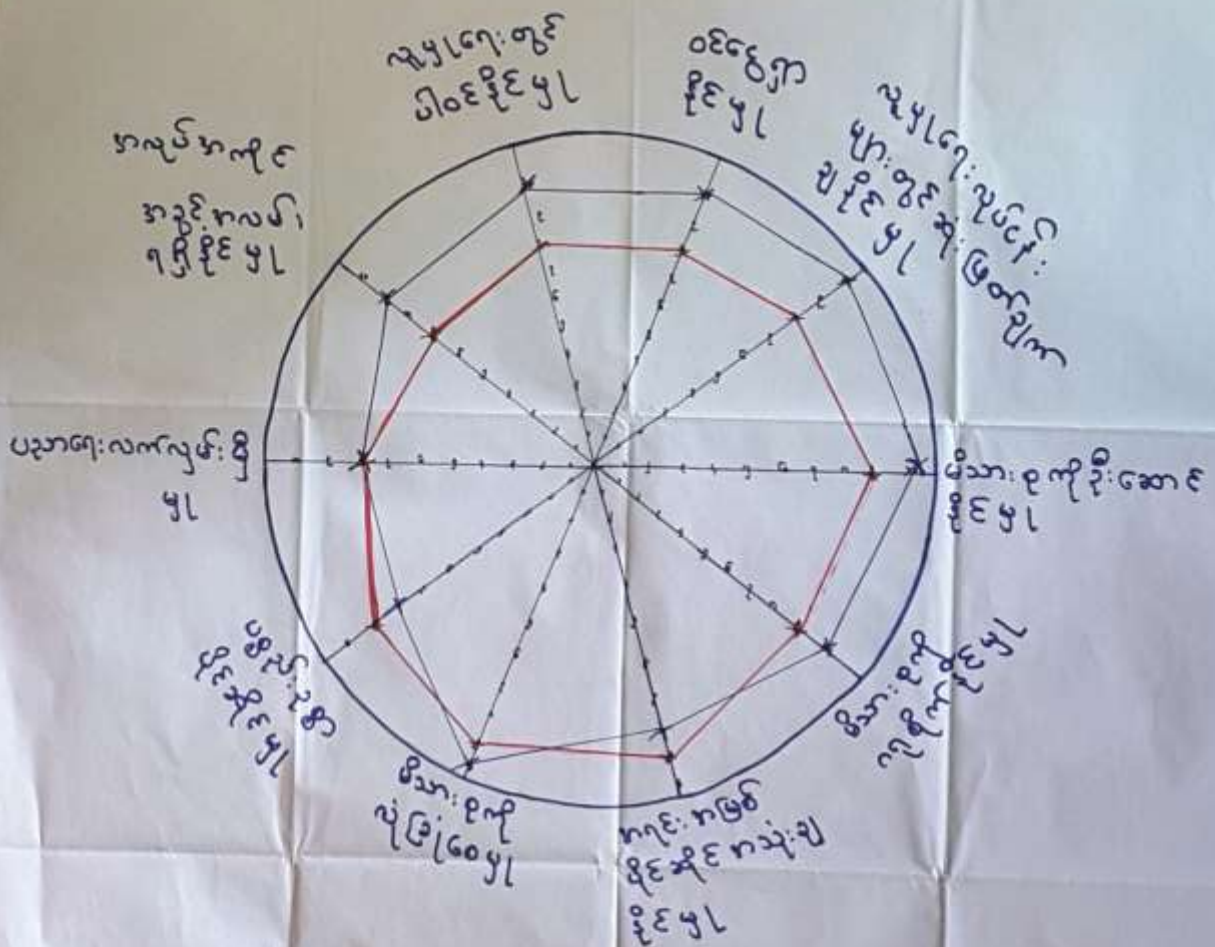 လူမှုရေးတွင်
ပါဝင်နိုင်မှု
ဝင်ငွေရှာ
နိုင်မှု
လူမှုရေးလုပ်ငန်း
များတွင် ဆုံးဖြတ်ချက်
ချနိုင်မှု
မိသားစုကိုဦးဆောင်
နိုင်မှု
မိသားစုကို
ဂရုစိုက်နိုင်မှု
အရင်းအမြစ်
ပိုင်ဆိုင်အသုံးချ
နိုင်မှု
မိသားစုကို
လုံခြုံပေးမှု
ပစ္စည်းဥစ္စာ
ပိုင်ဆိုင်မှု
ပညာရေးလက်လှမ်းမှီ
မှု
အလုပ်အကိုင်
အခွင့်အလမ်း
ရရှိနိုင်မှု